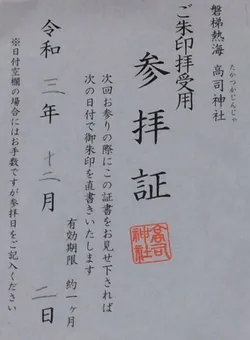 磐梯熱海 高司神社
たかつかじんじゃ
ご朱印拝受用
参拝証
次回お参りの際にこの証書をお見せ下されば
次の日付で御朱印を直書きいたします
有効期限 約一ヶ月
高司
神社
令和三年十二月二日
※日付空欄の場合にはお手数ですが参拝日をご記入ください